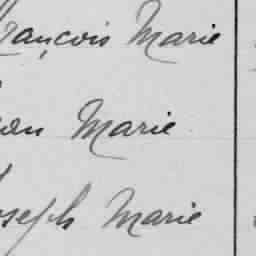 François Marie
Marie
Joseph Marie